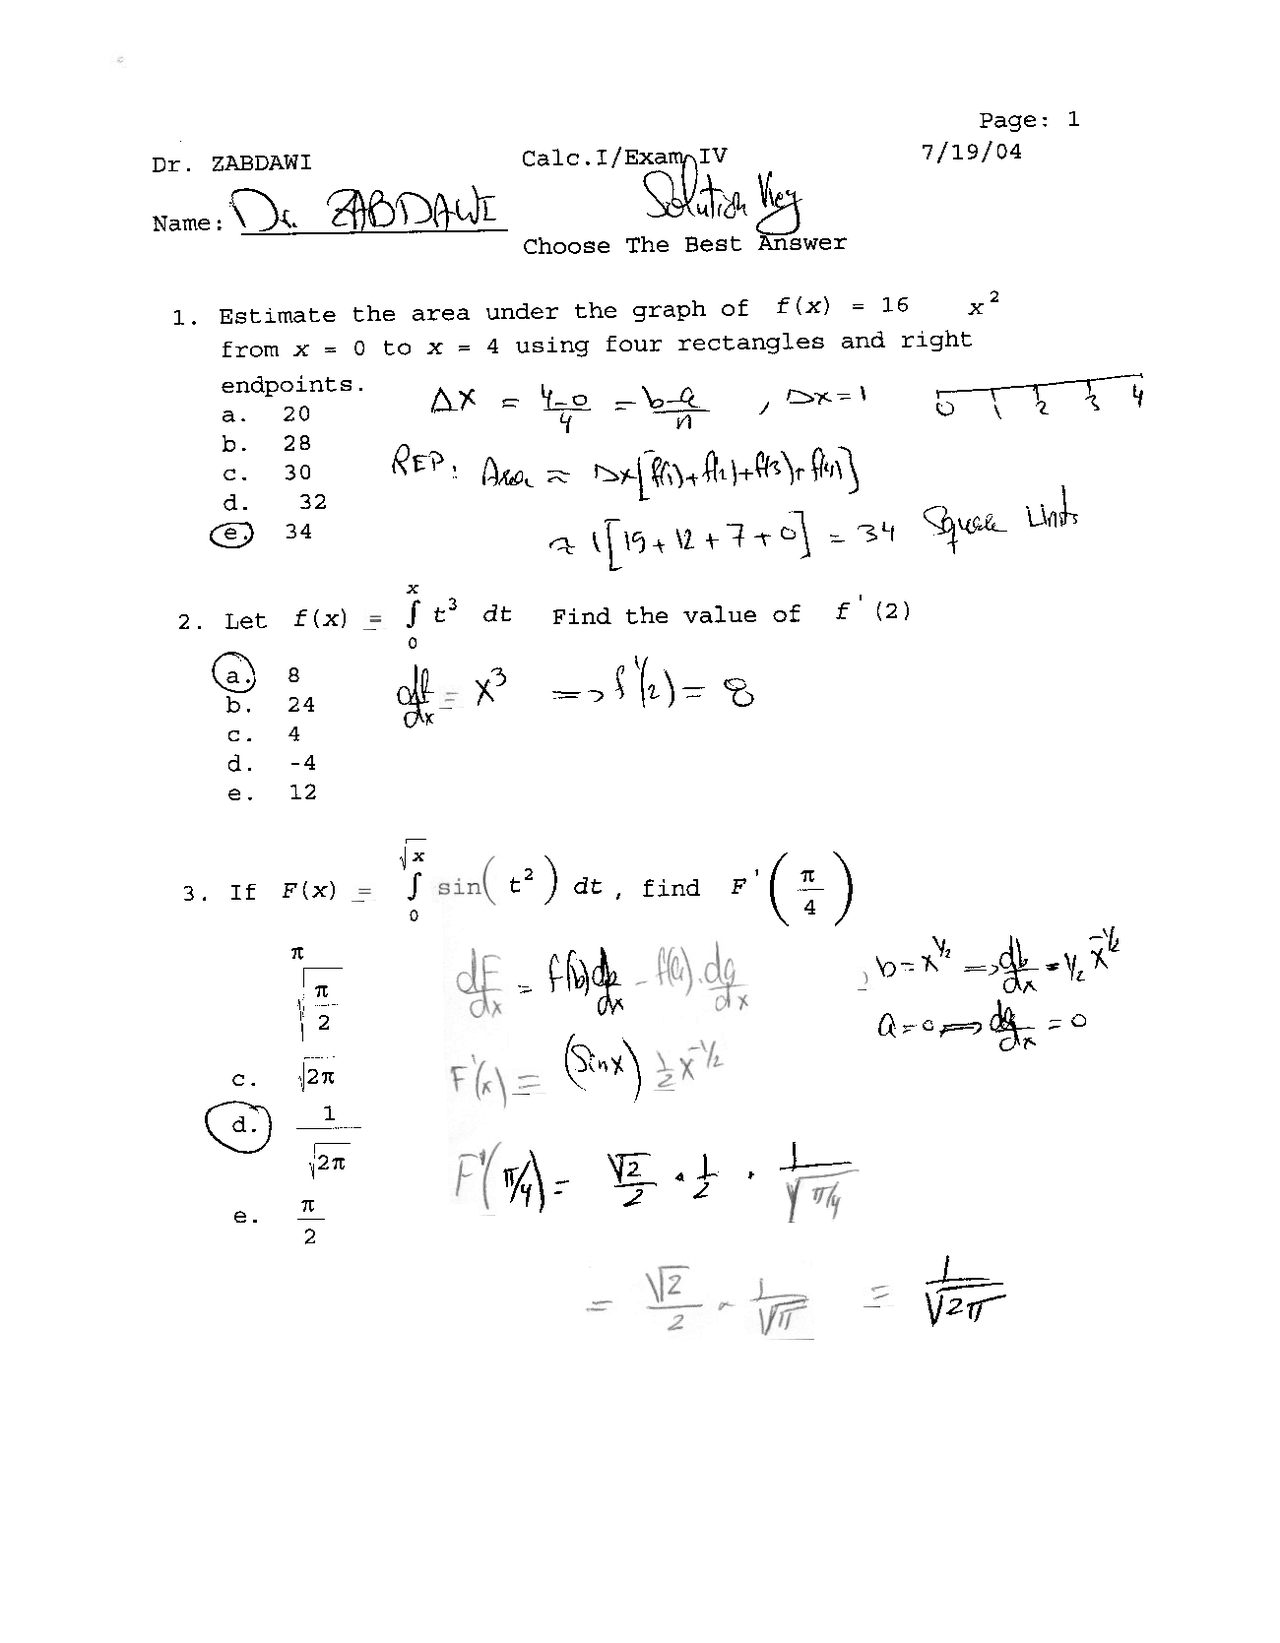 Page: 1
Dr. ZABDAWI Calc.I/Exam IV 7/19/04
Name: Dr. ZABDAWI Solution Key
Choose The Best Answer
1. Estimate the area under the graph of f(x) = 16 x²
from x = 0 to x = 4 using four rectangles and right
endpoints.
Δx = 4-0/4 = b-a/n , Δx = 1
0 1 2 3 4
a. 20
b. 28
c. 30
d. 32
e. 34
REP: Area ≈ Δx[f(1)+f(2)+f(3)+f(4)]
≈ 1[15+12+7+0] = 34 Square Units
2. Let f(x) = ∫₀ˣ t³ dt Find the value of f'(2)
a. 8
b. 24
c. 4
d. -4
e. 12
df/dx = x³ => f'(2) = 8
3. If F(x) = ∫₀^√x sin(t²) dt, find F'(π/4)
π
√(π/2)
c. √2π
d. 1/√2π
e. π/2
dF/dx = f(b)db/dx - f(a).da/dx , b = x^1/2 => db/dx = 1/2 x^-1/2
a = 0 => da/dx = 0
F'(x) = (Sinx) 1/2 x^-1/2
F'(π/4) = √2/2 · 1/2 · 1/√π/4
= √2/2 · 1/√π = 1/√2π